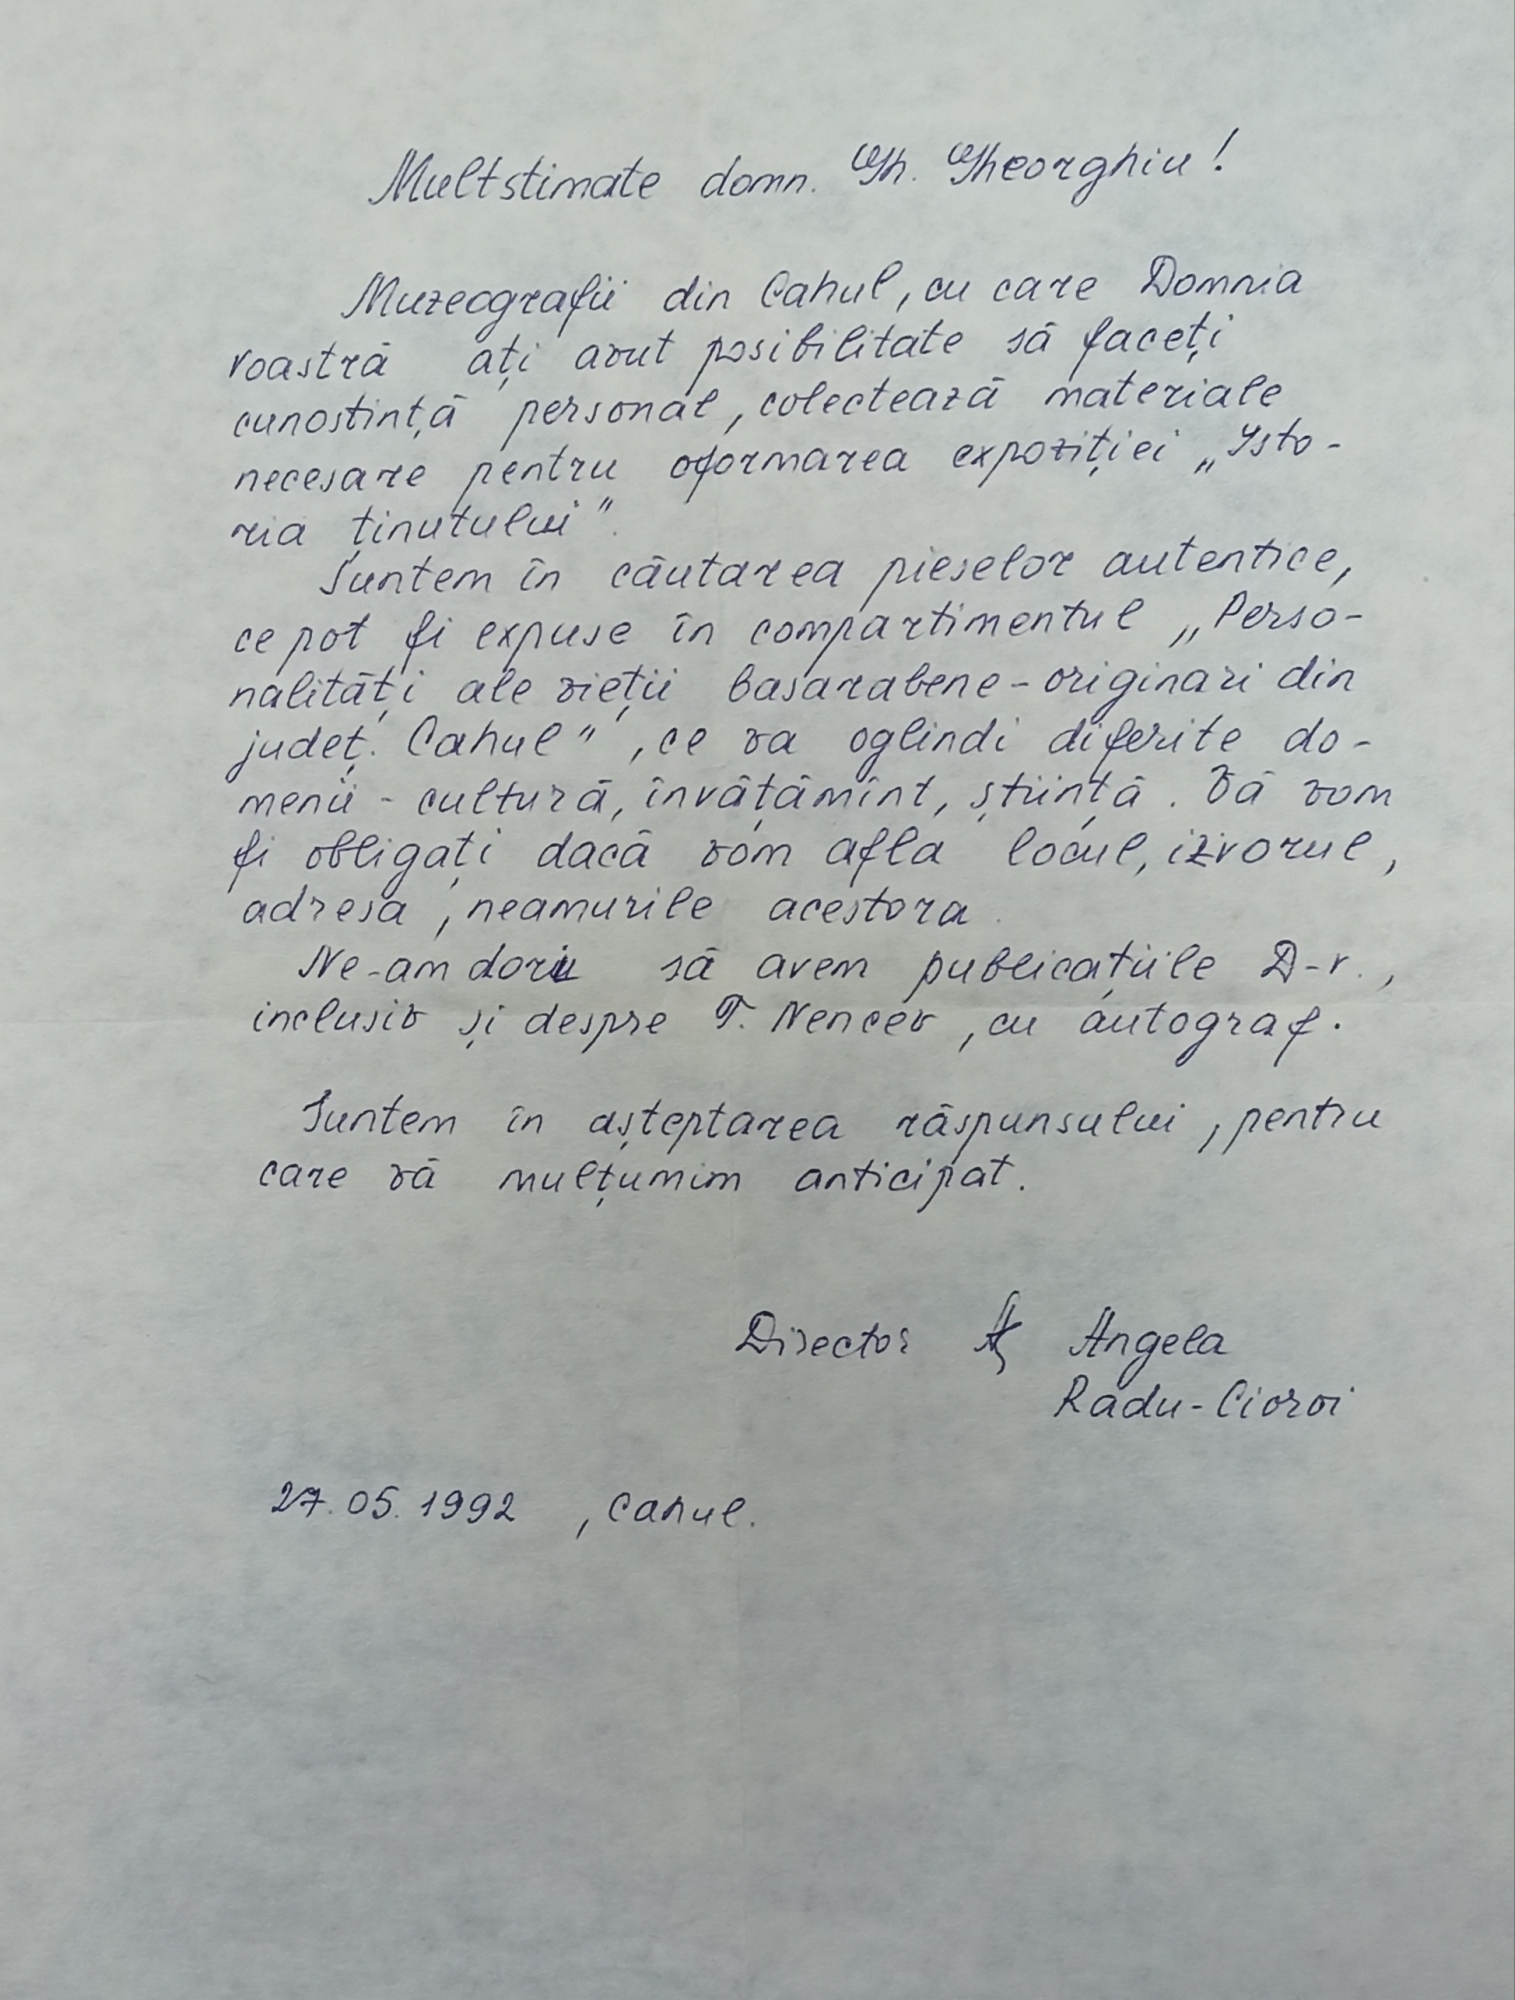 Multstimate domn. Gh. Gheorghiu!
Muzeografii din Cahul, cu care Domnia
voastră ați avut posibilitate să faceți
cunostință personal, colectează materiale
necesare pentru oformarea expoziției „Isto-
ria ținutului”.
Suntem în căutarea pieselor autentice,
ce pot fi expuse în compartimentul „Perso-
nalități ale vieții basarabene-originari din
județ. Cahul”, ce va oglindi diferite do-
menii - cultură, învățămînt, știință. Vă vom
fi obligați dacă vom afla locul, izvorul,
adresa, neamurile acestora.
Ne-am dori să avem publicațiile D-v.,
inclusiv și despre T. Nencev, cu autograf.
Suntem în așteptarea răspunsului, pentru
care vă mulțumim anticipat.
Director Angela
Radu-Cioroi
27.05.1992, Cahul.